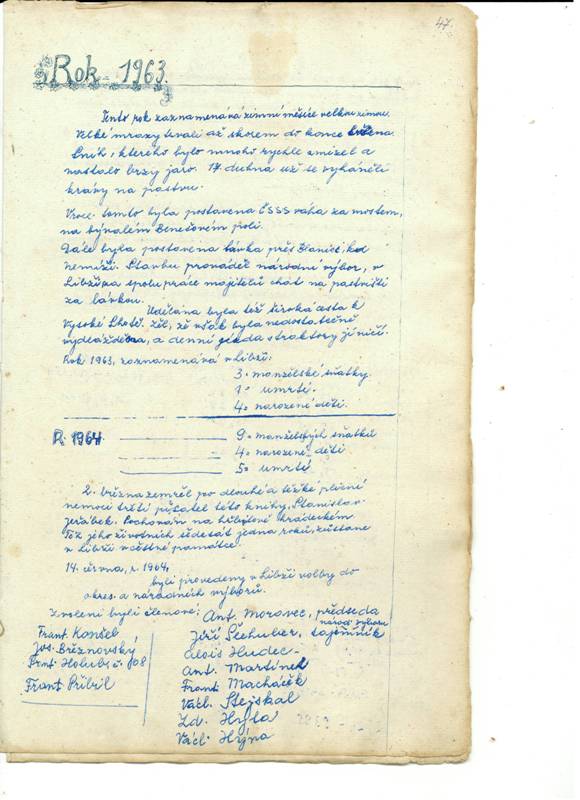 47.
Rok 1963.
Tento rok zaznamenává zimní měsíce velkou zimou.
Velké mrazy trvali až skorem do konce března.
Sníh, kterého bylo mnoho rychle zmizel a
nastalo brzy jaro. 17. dubna už se vyháněli
krávy na pastvu.
V roce tomto byla postavena ČSSS váha za mostem,
na bývalém Benešovém poli.
Dále byla postavena lávka přes Blanici, k
Stavbu prováděl národní výbor, v
Libži za spolupráce majitelů chat na pastvišti
za lávkou.
Udělána byla též široká cesta k
Vysoké Lhotě. Žel, že však byla nedostatečně
a denní jízda s traktory jí ničí.
Rok 1963, zaznamenává v Libži:
3. manželské sňatky.
1. úmrtí.
4. narozené děti.
R. 1964
9. manželských sňatků
4. narozené děti
5. úmrtí.
2. března zemřel po dlouhé a těžké plicní
nemoci třetí pisatel této knihy, Stanislav
Jeřábek. Pochován na hřbitově hrádeckém.
Též jeho životních šedesát jedna roků, zůstane
v Libži v čestné památce.
14. června, r. 1964,
byli provedeny v Libži volby do
okres. a národních výborů.
Zvoleni byli členové: Ant. Moravec, předseda
národ. výboru
Jiří Čechuber, tajemník
Alois Hudec
Ant. Martínek
Frant. Macháček
Václ. Stejskal
Zd. Hýla
Václ. Hrjna
Frant. Konšel
Jos. Březnovský
Frnt. Holub, č. 108
Frant Přibil